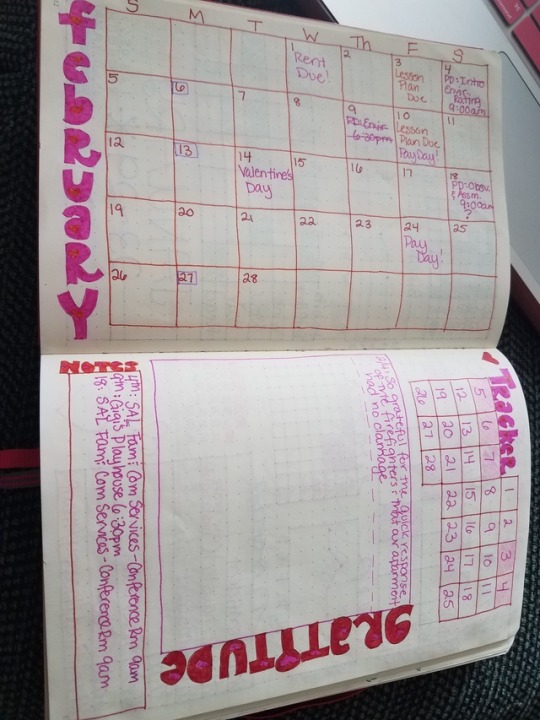 February
S M T W Th F S
1 Rent Due!
2
3 Lesson Plan Due
4 PD: Intro Envir. Rating 9:00am
5
6
7
8
9 PD: Envir. 6:30pm
10 Lesson Plan Due Pay Day!
11
12
13
14 Valentine's Day
15
16
17
18 PD: Obsv. & Assm. 9:00am ?
19
20
21
22
23
24 Pay Day!
25
26
27
28
Tracker
1 2 3 4
5 6 7 8 9 10 11
12 13 14 15 16 17 18
19 20 21 22 23 24 25
26 27 28
Gratitude
So grateful for the quick response
of the firefighters & that our apartment
had no damage
Notes
4th: SAL Fam: Com Services - Conference Rm 9am
9th: Gigi's Playhouse 6:30pm
18: SAL Fam: Com Services - Conference Rm 9am